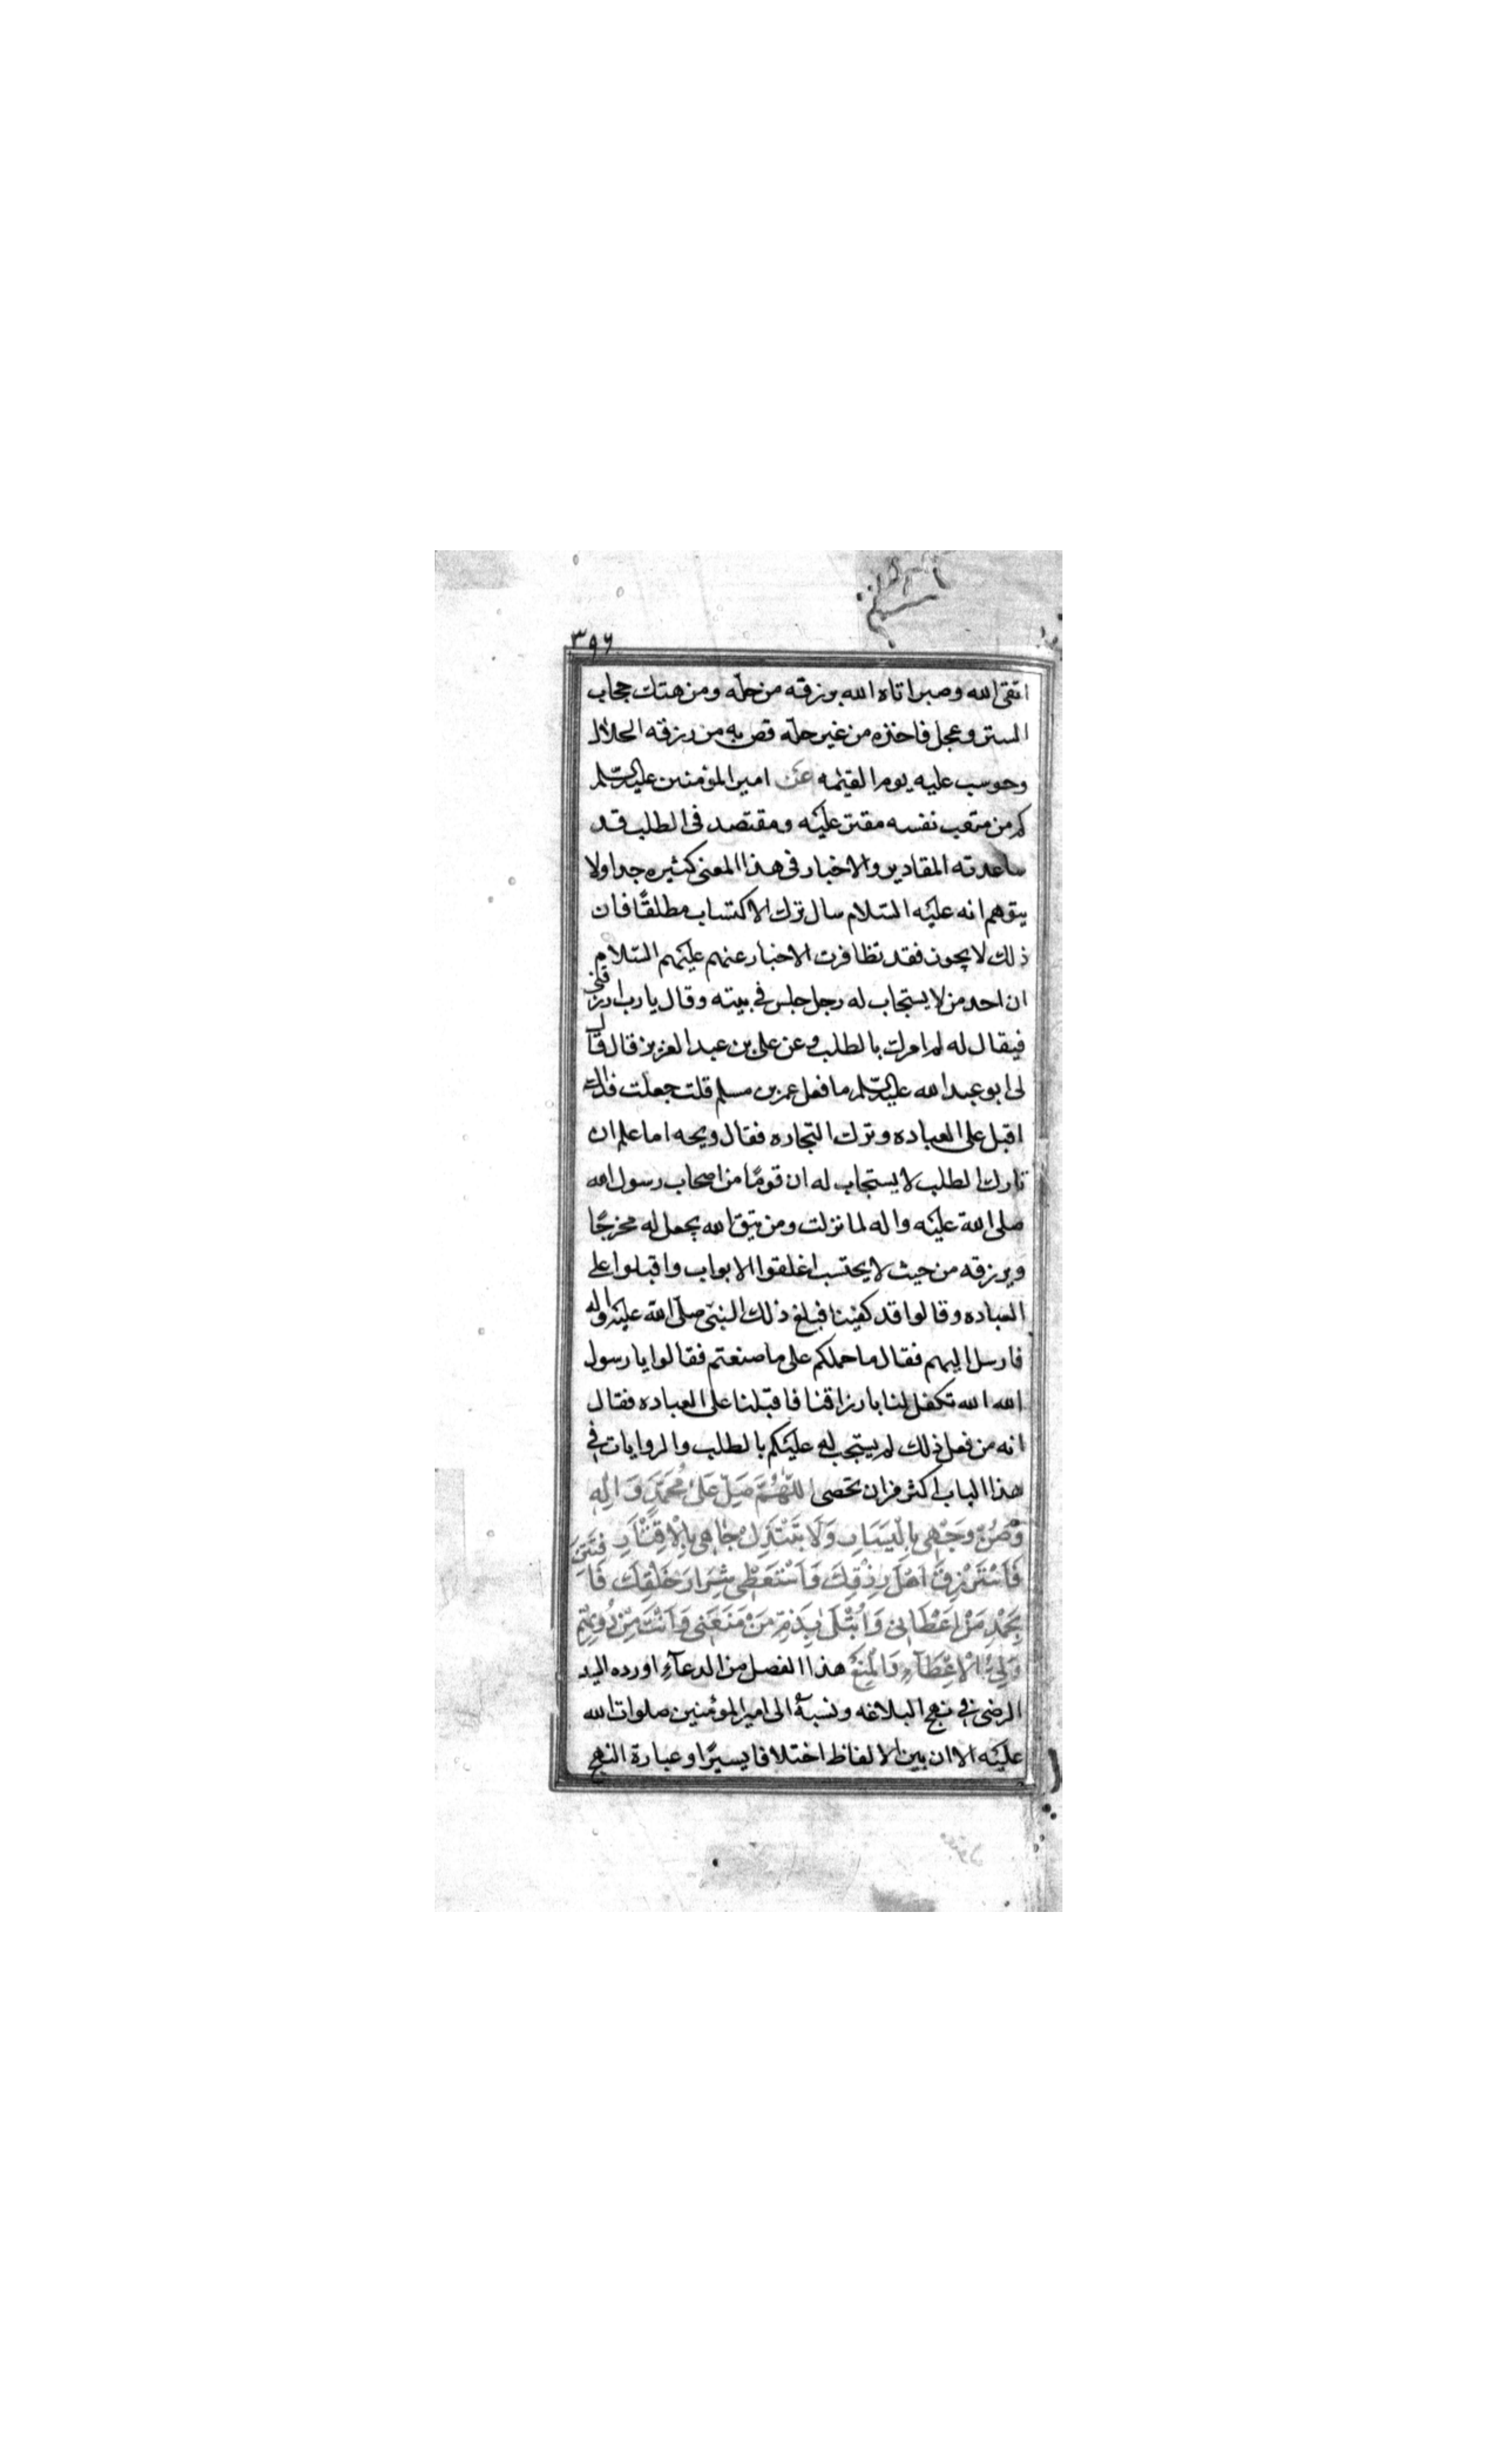 ٣٩٦
اتقى الله وصبر اتاه الله برزقه من حله ومن هتك حجاب
الستر وعجل فاخذه من غير حله قص به من رزقه الحلال
وحوسب عليه يوم القيمه عن امير المؤمنين عليه السلم
كم من متعب نفسه مقتر عليه ومقتصد فى الطلب قد
ساعدته المقادير والاخبار فى هذا المعنى كثيره جدا ولا
يتوهم انه عليه السلام سال ترك الاكتساب مطلقًا فان
ذلك لا يجوز فقد تظافرت الاخبار عنهم عليهم السلام
ان احد من لا يستجاب له رجل جلس فى بيته وقال يا رب ارزقنى
فيقال له لم امرك بالطلب وعن على بن عبد العزيز قال قال
لى ابو عبد الله عليه السلم ما فعل عمر بن مسلم قلت جعلت فداك
اقبل على العباده وترك التجاره فقال ويحه اما علم ان
تارك الطلب لا يستجاب له ان قومًا من اصحاب رسول الله
صلى الله عليه واله لما نزلت ومن يتق الله يجعل له مخرجًا
ويرزقه من حيث لا يحتسب اغلقوا الابواب واقبلوا على
العباده وقالوا قد كفينا فبلغ ذلك النبى صلّى الله عليه واله
فارسل اليهم فقال ما حملكم على ما صنعتم فقالوا يا رسول
الله الله تكفل لنا بارزاقنا فاقبلنا على العباده فقال
انه من فعل ذلك لم يستجب له عليكم بالطلب والروايات فى
هذا الباب اكثر من ان تحصى اللّهُمَّ صَلِّ عَلىٰ مُحَمَّدٍ وَالِهِ
وَصُنْ وَجْهِى بِالْيَسَارِ وَلَا تَبْتَذِلْ جَاهِى بِالْاِقْتَارِ
فَاَسْتَرْزِقَ اَهْلَ رِزْقِكَ وَاَسْتَعْطِىَ شِرَارَ خَلْقِكَ فَاَفْتَتِنَ
بِحَمْدِ مَنْ اَعْطَانِى وَاُبْتَلىٰ بِذَمِّ مَنْ مَنَعَنِى وَاَنْتَ مِنْ دُونِهِمْ
وَلِىُّ الْاِعْطَآءِ وَالْمَنْعِ هذا الفصل من الدعآء اورده السيد
الرضى فى نهج البلاغه ونسبه الى امير المؤمنين صلوات الله
عليه الا ان بين الالفاظ اختلافا يسيرًا وعبارة النهج